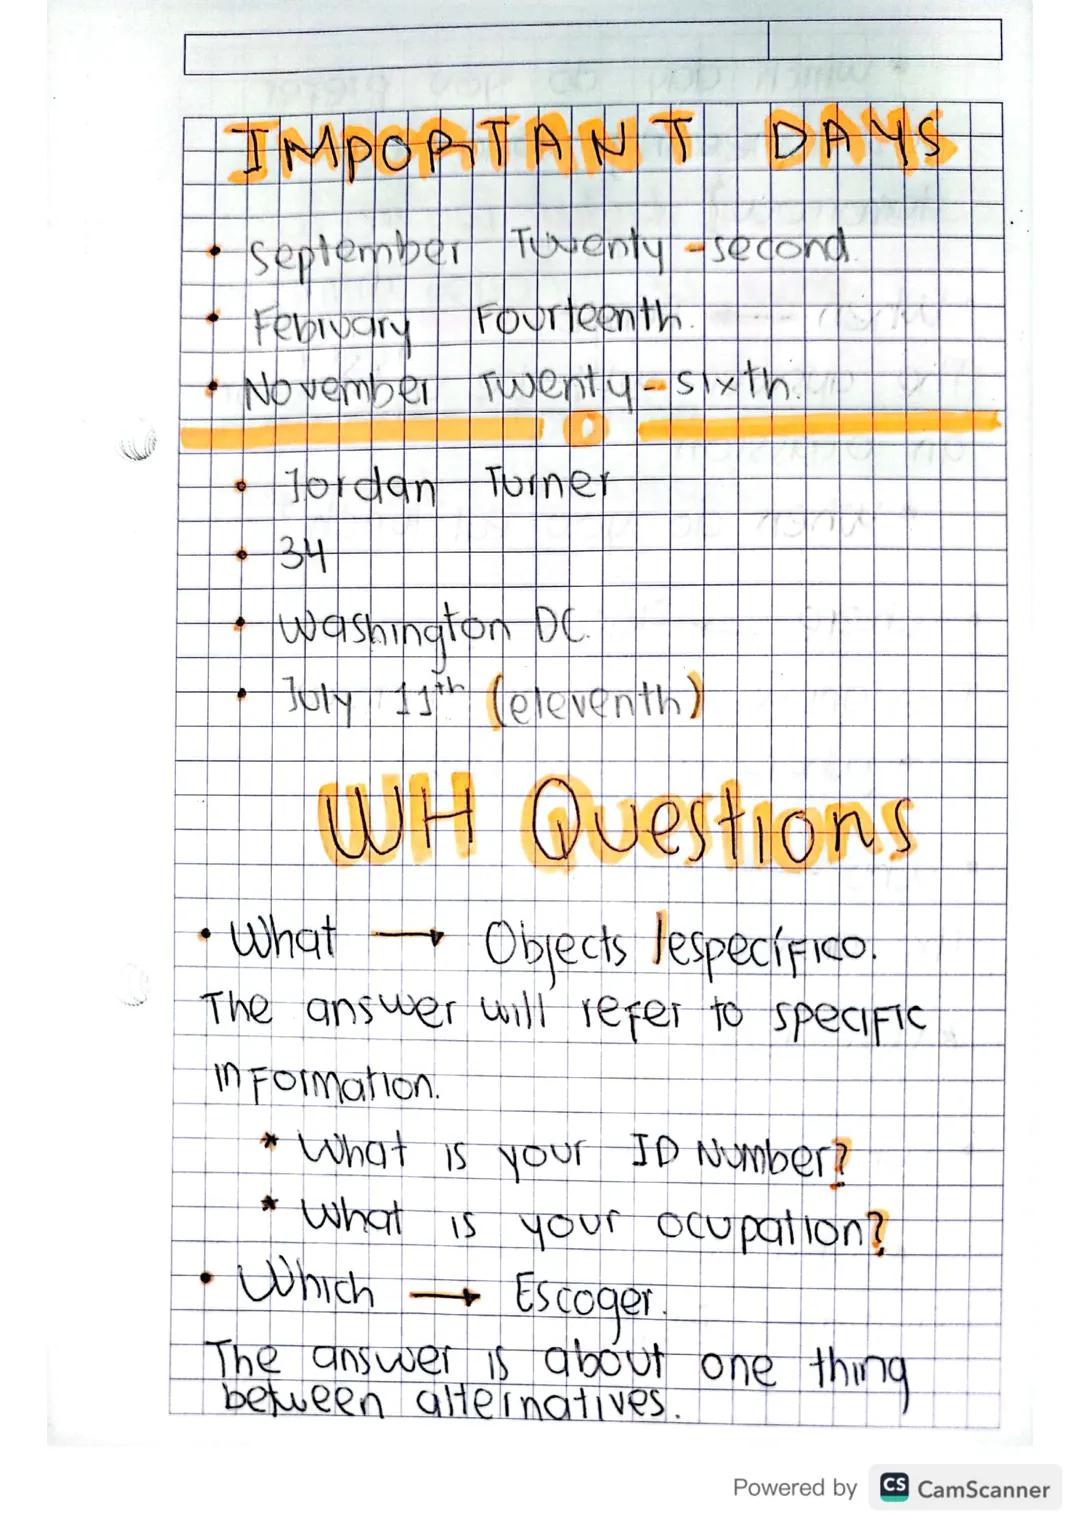 IMPORTANT DAYS
• September Twenty-second.
• February Fourteenth.
• November Twenty-sixth.
• Jordan Turner
• 34
• Washington DC.
• July 11th (eleventh)
WH Questions
• What → Objects / específico.
The answer will refer to specific
information.
* What is your ID Number?
* What is your ocupation?
• Which → Escoger.
The answer is about one thing
between alternatives.
Powered by CS CamScanner